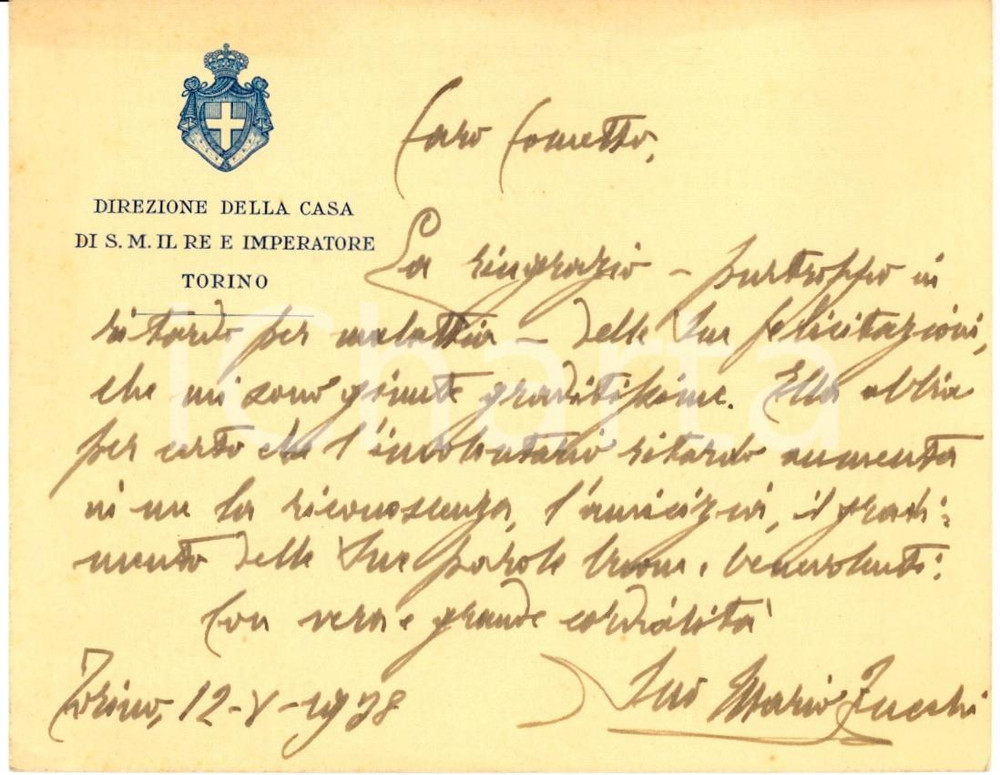 DIREZIONE DELLA CASA
DI S. M. IL RE E IMPERATORE
TORINO
Caro Cometto,
La ringrazio – purtroppo in
ritardo per malattia – delle Sue felicitazioni,
che mi sono giunte graditissime. Ella abbia
per certo che l'involontario ritardo aumenta
in me la riconoscenza, l'amicizia, il gradi-
mento delle Sue parole buone e benevolenti.
Con vera e grande cordialità
Torino, 12-V-1938
Suo Mario Zucchi
iCharta